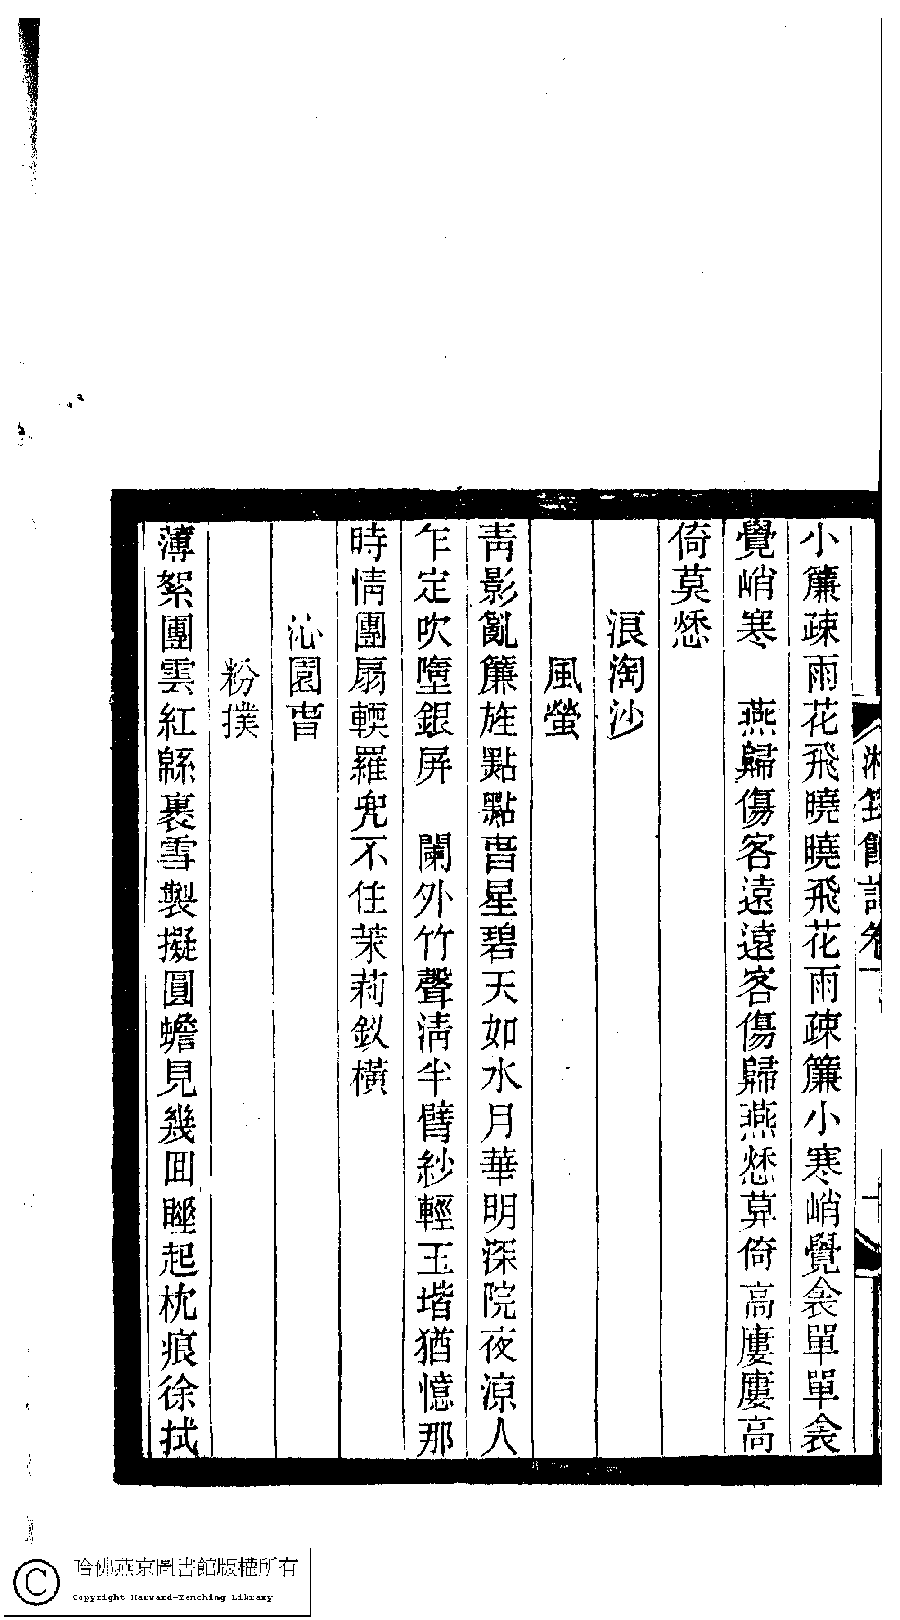 湘筠館詞卷
小簾疎雨花飛曉曉飛花雨疎簾小寒峭覺衾單單衾
覺峭寒　燕歸傷客遠遠客傷歸燕愁莫倚高廔廔高
倚莫愁
浪淘沙
風螢
靑影亂簾旌點點旾星碧天如水月華明深院夜涼人
乍定吹墮銀屏　闌外竹聲淸半臂紗輕玉堦猶憶那
時情團扇輭羅兜不住茉莉釵橫
沁園旾
粉撲
薄絮團雲紅緜裹雪製擬圓蟾見幾回睡起枕痕徐拭
哈佛燕京圖書館版權所有
Copyright Harvard-Yenching Library